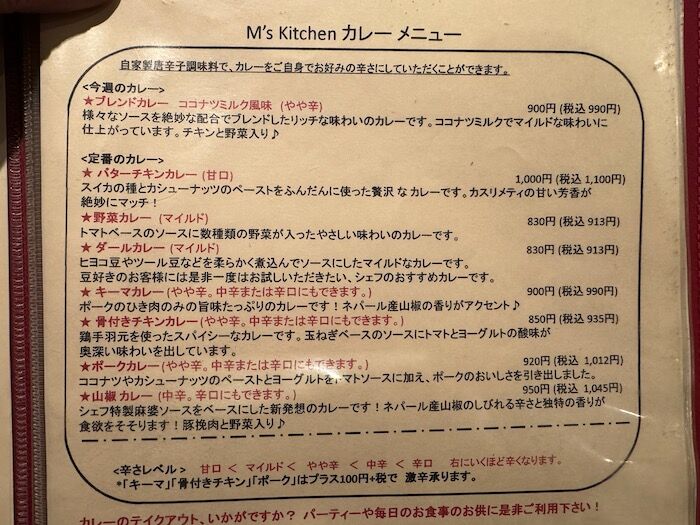 M's Kitchen カレー メニュー
自家製唐辛子調味料で、カレーをご自身でお好みの辛さにしていただくことができます。
<今週のカレー>
★ブレンドカレー ココナツミルク風味 (やや辛) 900円 (税込 990円)
様々なソースを絶妙な配合でブレンドしたリッチな味わいのカレーです。ココナツミルクでマイルドな味わいに
仕上がっています。チキンと野菜入り♪
<定番のカレー>
★ バターチキンカレー (甘口) 1,000円 (税込 1,100円)
スイカの種とカシューナッツのペーストをふんだんに使った贅沢 な カレーです。カスリメティの甘い芳香が
絶妙にマッチ!
★野菜カレー (マイルド) 830円 (税込 913円)
トマトベースのソースに数種類の野菜が入ったやさしい味わいのカレーです。
★ ダールカレー (マイルド) 830円 (税込 913円)
ヒヨコ豆やツール豆などを柔らかく煮込んでソースにしたマイルドなカレーです。
豆好きのお客様には是非一度はお試しいただきたい、シェフのおすすめカレーです。
★ キーマカレー (やや辛。中辛または辛口にもできます。) 900円 (税込 990円)
ポークのひき肉のみの旨味たっぷりのカレーです!ネパール産山椒の香りがアクセント♪
★ 骨付きチキンカレー (やや辛。中辛または辛口にもできます。) 850円 (税込 935円)
鶏手羽元を使ったスパイシーなカレーです。玉ねぎベースのソースにトマトとヨーグルトの酸味が
奥深い味わいを出しています。
★ポークカレー (やや辛。中辛または辛口にもできます。) 920円 (税込 1,012円)
ココナツやカシューナッツのペーストとヨーグルトをトマトソースに加え、ポークのおいしさを引き出しました。
★山椒カレー (中辛。辛口にもできます。) 950円 (税込 1,045円)
シェフ特製麻婆ソースをベースにした新発想のカレーです!ネパール産山椒のしびれる辛さと独特の香りが
食欲をそそります!豚挽肉と野菜入り♪
<辛さレベル> 甘口 < マイルド < やや辛 < 中辛 < 辛口 右にいくほど辛くなります。
*「キーマ」「骨付きチキン」「ポーク」はプラス100円+税で 激辛承ります。
カレーのテイクアウト、いかがですか? パーティーや毎日のお食事のお供に是非ご利用下さい!